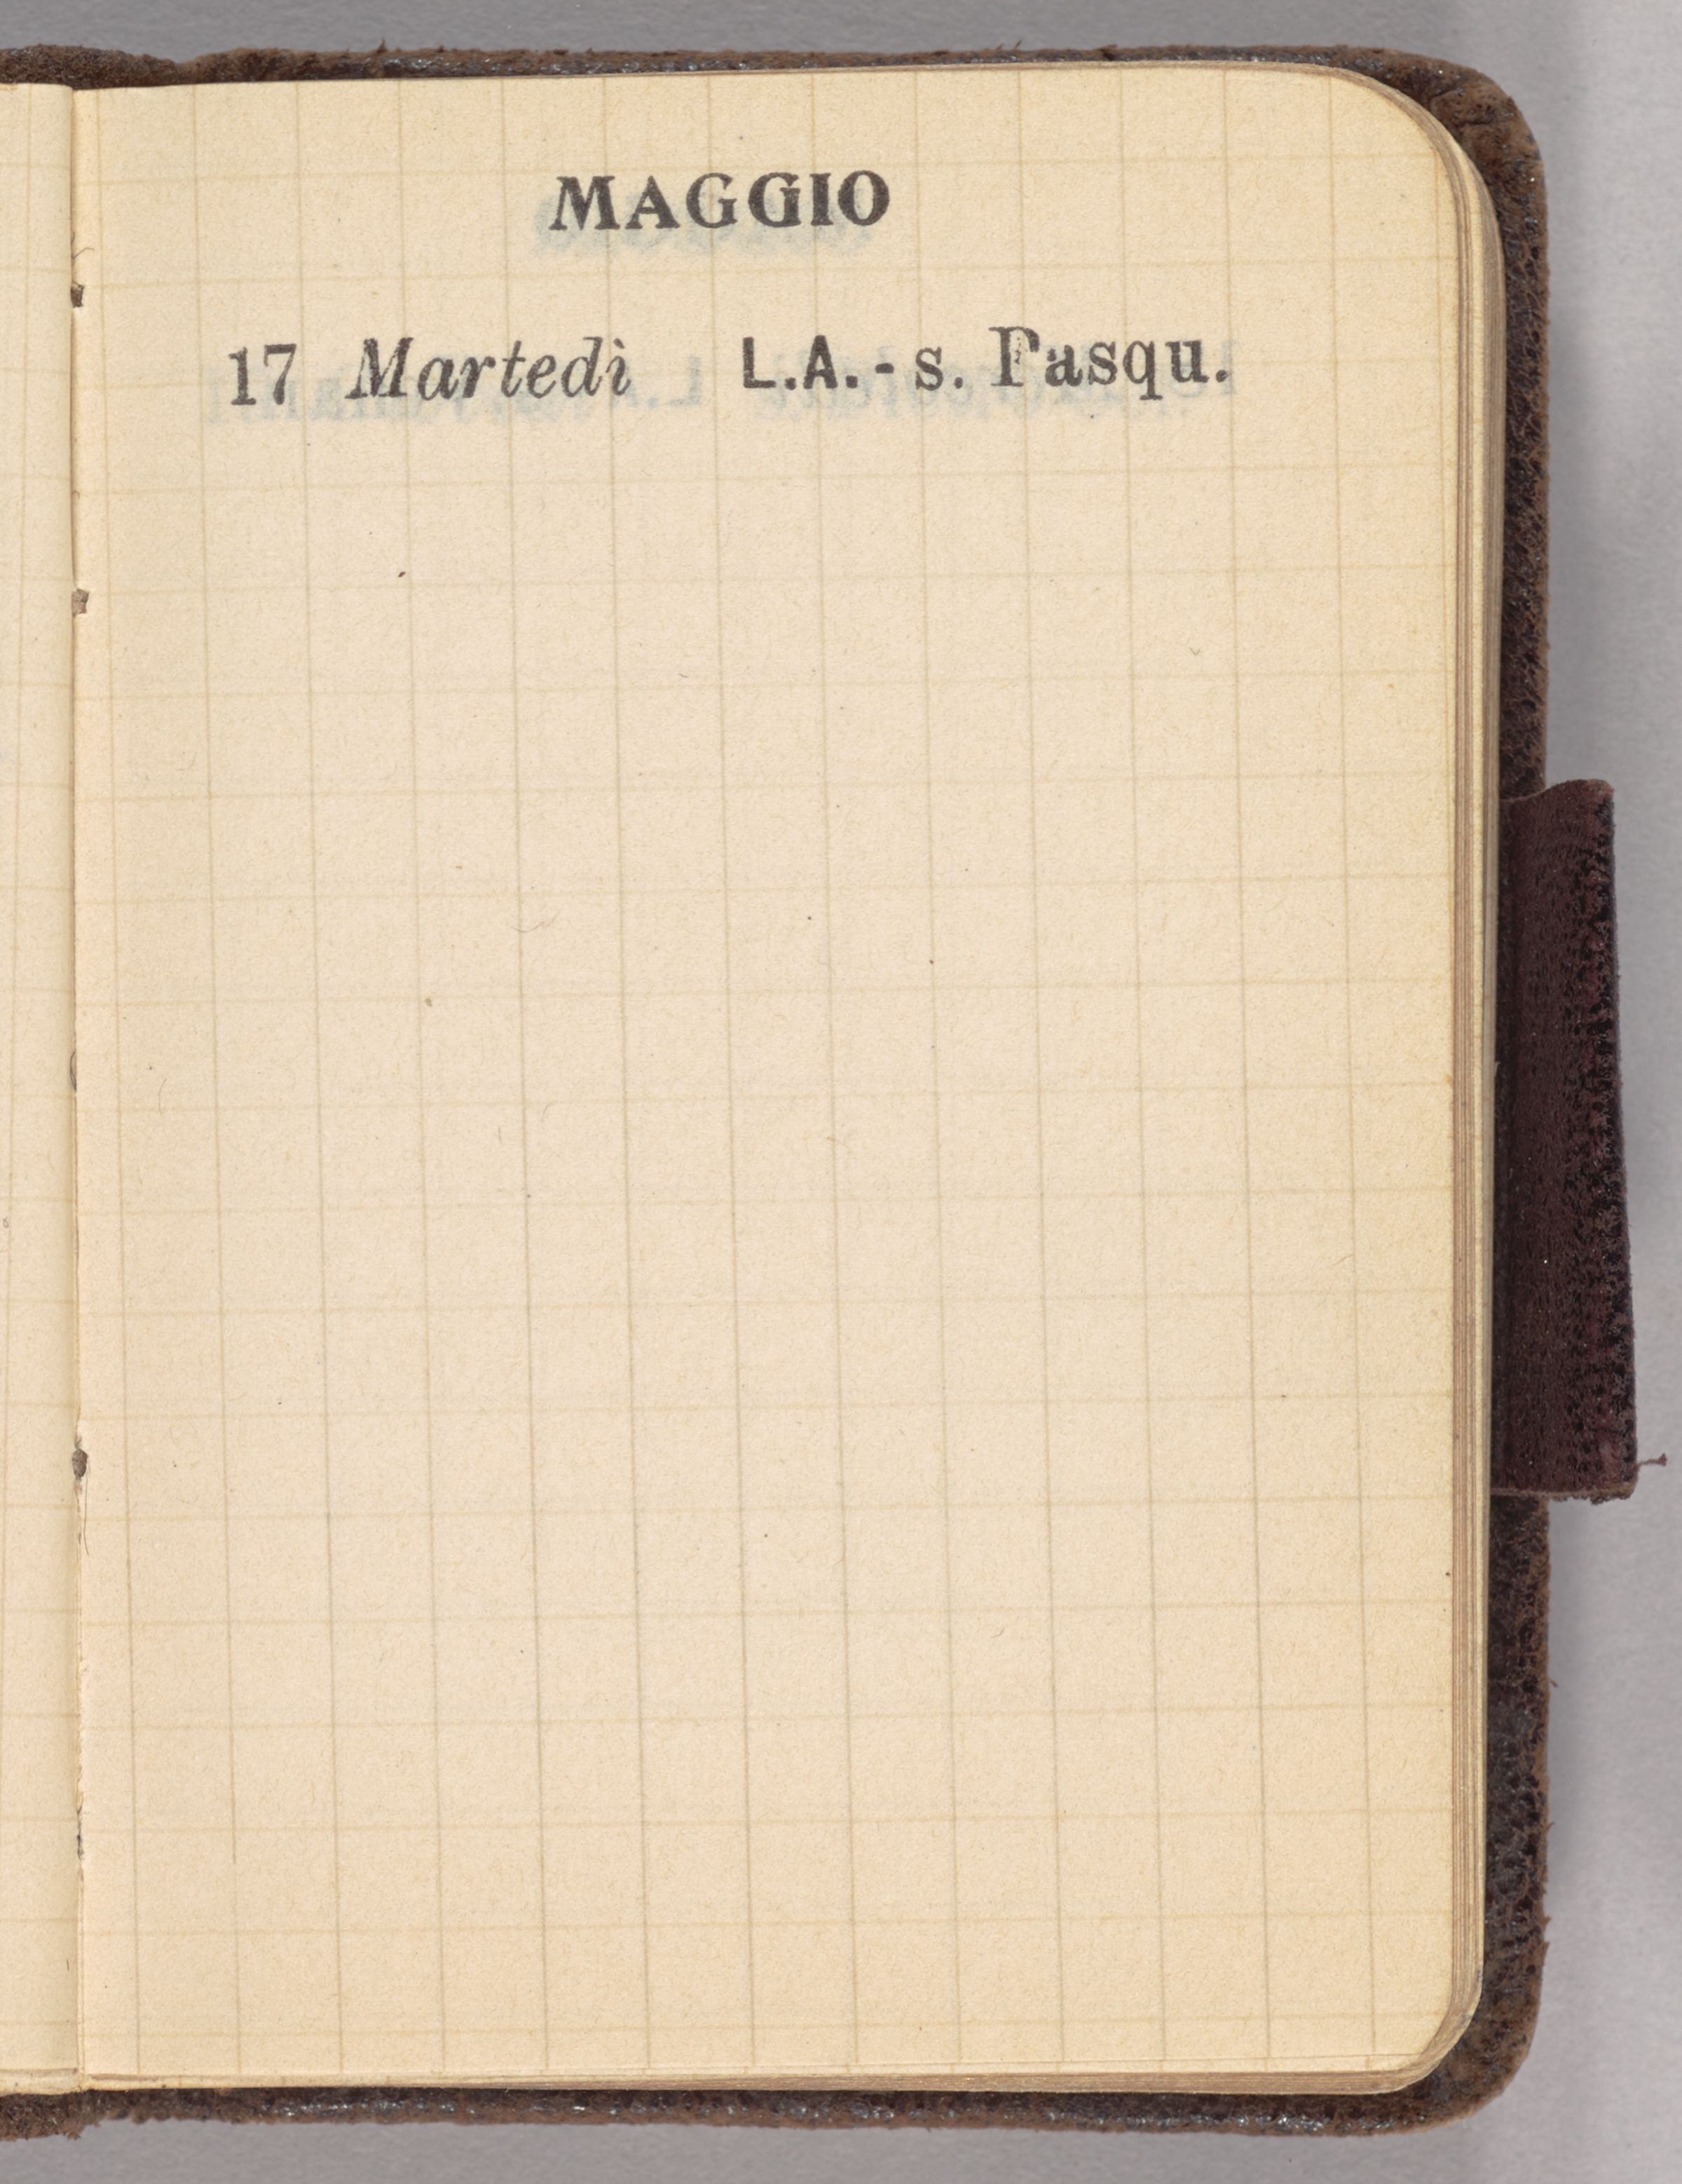 MAGGIO
17 Martedì L.A.- s. Pasqu.